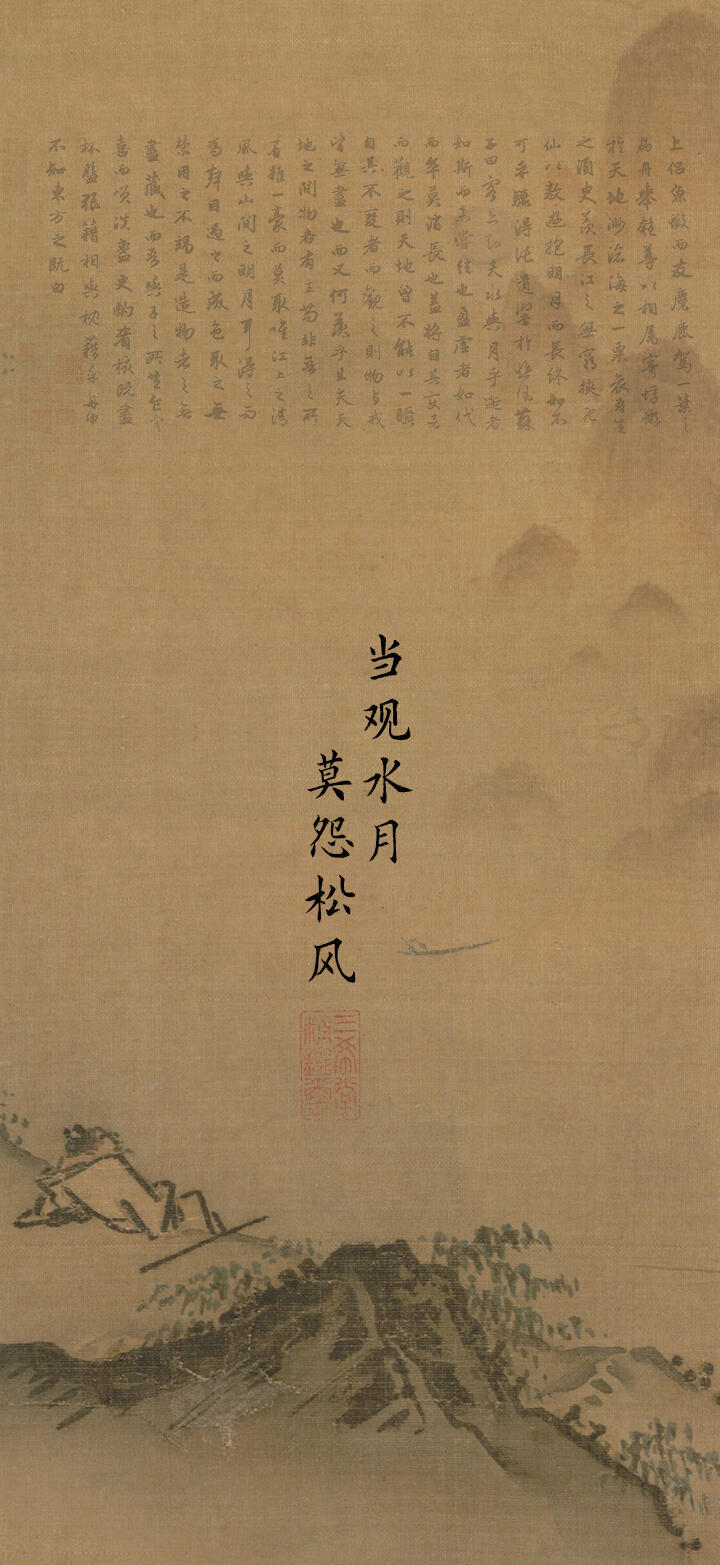 上侣魚鰕而友麋鹿駕一葉之
扁舟舉匏尊以相属寄蜉蝣
於天地渺滄海之一粟哀吾生
之須臾羡長江之無窮挾飛
仙以敖遊抱明月而長終知不
可乎驟得託遺響於悲風蘇
子曰客亦知夫水與月乎逝者
如斯而未嘗往也盈虚者如代
而卒莫消長也盖將自其變者
而觀之則天地曾不能以一瞬
自其不變者而觀之則物与我
皆無盡也而又何羡乎且夫天
地之間物各有主苟非吾之所
有雖一豪而莫取唯江上之清
風與山間之明月耳得之而
為聲目遇之而成色取之無
禁用之不竭是造物者之無
盡藏也而吾與子之所共食客
喜而笑洗盞更酌肴核既盡
杯盤狼籍相與枕藉乎舟中
不知東方之既白
当观水月
莫怨松风
三希堂
精鑑璽